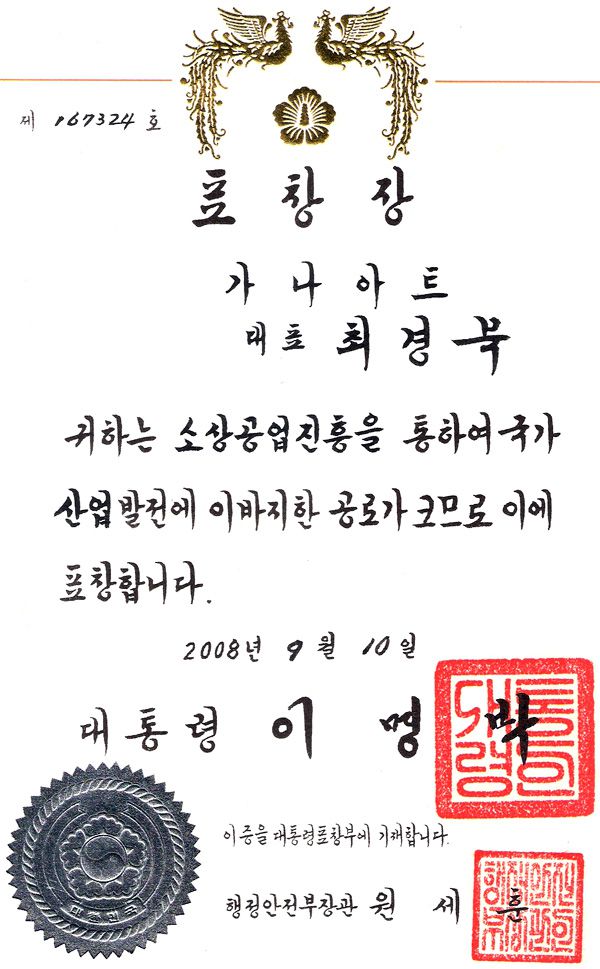 제 167324 호
표 창 장
가 나 아 트
대표 최 경 북
귀하는 소상공업진흥을 통하여 국가
산업발전에 이바지한 공로가 크므로 이에
표창합니다.
2008년 9 월 10 일
대 통 령 이 명 박
대통령의
이 증을 대통령표창부에 기재합니다.
행정안전부장관 원 세 훈
대한민국